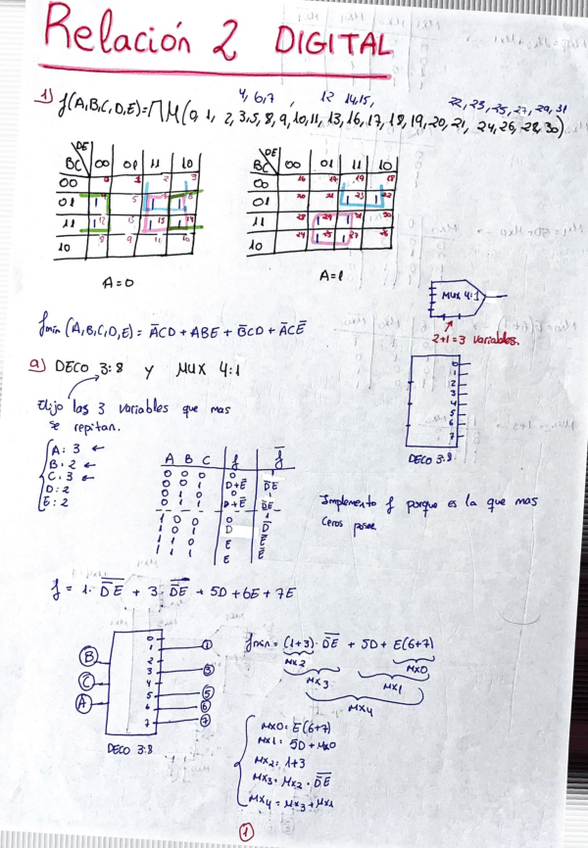 Relación 2 DIGITAL
4, 6, 7, 12 14, 15, 22, 23, 25, 27, 29, 31
1) f(A,B,C,D,E)=∏M(0, 1, 2, 3, 5, 8, 9, 10, 11, 13, 16, 17, 18, 19, 20, 21, 24, 26, 28, 30)
BC DE 00 01 11 10
00 0 1 2 3
01 1 4 5 1 1 6
11 1 12 13 1 15 1 14
10 8 9 11 10
A=0
BC DE 00 01 11 10
00 16 17 19 18
01 20 21 1 23 1 22
11 28 1 29 1 31 30
10 24 1 25 1 27 26
A=1
MUX 4:1
2+1=3 variables.
fmin (A,B,C,D,E) = A̅CD + ABE + B̅CD + A̅CE̅
a) DECO 3:8 y MUX 4:1
0
1
2
3
4
5
6
7
DECO 3:8
Elijo las 3 variables que mas
se repitan.
A: 3 ←
B: 2 ←
C: 3 ←
D: 2
E: 2
A B C f f̅
0 0 0 0 1
0 0 1 D+E̅ D̅E
0 1 0 0 1
0 1 1 D+E̅ D̅E
1 0 0 0 1
1 0 1 D D̅
1 1 0 E E̅
1 1 1 E E̅
Implemento f porque es la que mas
ceros posee
f = 1· D̅E̅ + 3· D̅E̅ + 5D + 6E + 7E
B
C
A
0
1 1
2
3 3
4
5 5
6 6
7 7
DECO 3:8
fmin = (1+3)· D̅E̅ + 5D + E(6+7)
MX2 MX0
MX3 MX1
MX4
MX0 = E(6+7)
MX1 = 5D + MX0
MX2 = 1+3
MX3 = MX2 · D̅E̅
MX4 = MX3 + MX1
1